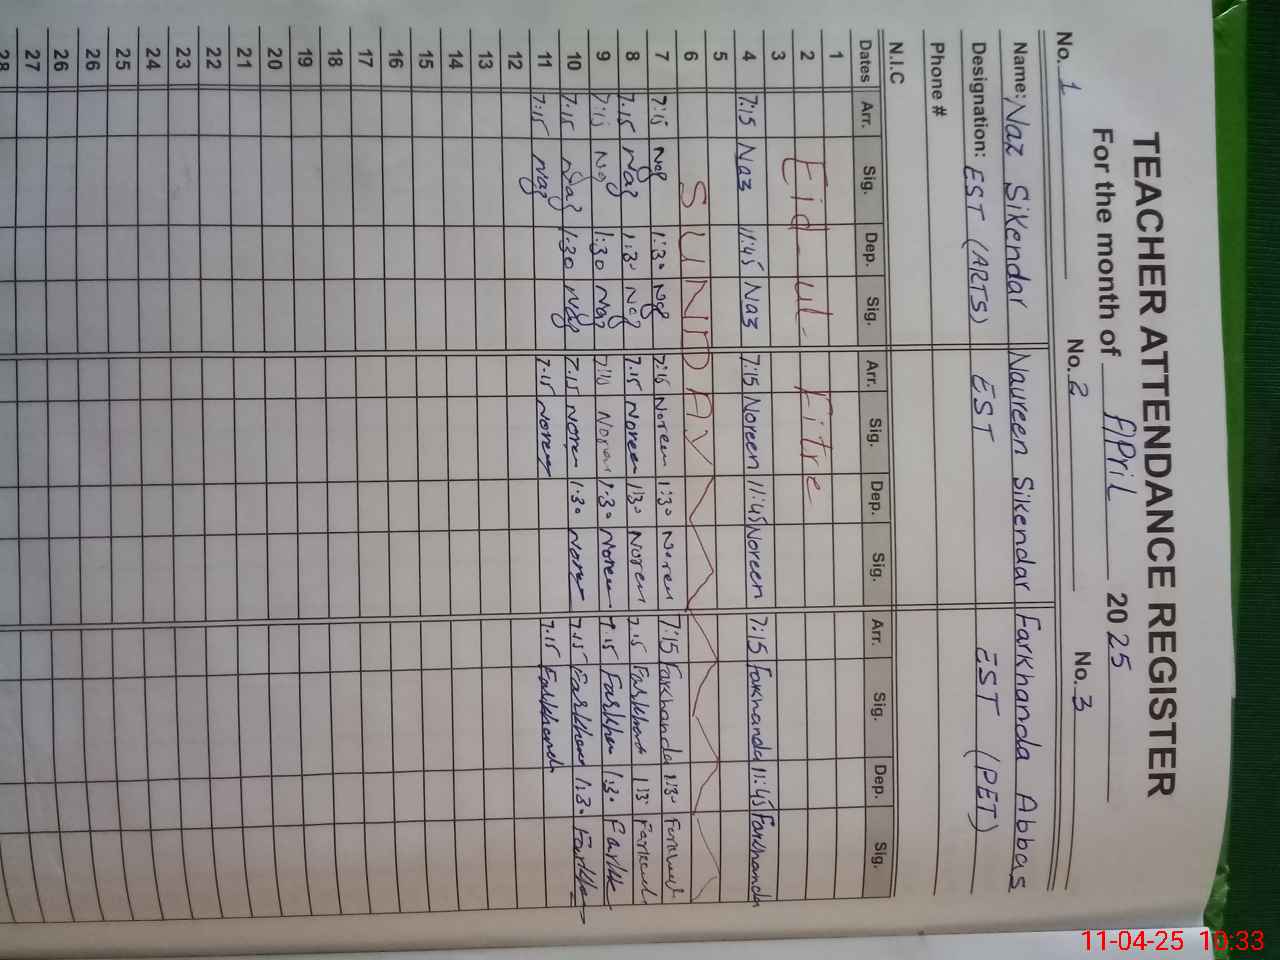 TEACHER ATTENDANCE REGISTER
For the month of April 2025
No. 1 No. 2 No. 3
Name: Naz Sikendar Naureen Sikendar Farkhanda Abbas
Designation: EST (ARTS) EST EST (PET)
Phone #
N.I.C
Dates Arr. Sig. Dep. Sig. Arr. Sig. Dep. Sig. Arr. Sig. Dep. Sig.
1
2 Eid-ul-Fitre
3
4 7:15 Naz 11:45 Naz 7:15 Noreen 11:45 Noreen 7:15 Farkhanda 11:45 Farkhanda
5
6 SUNDAY
7 7:15 Naz 1:30 Naz 7:15 Noreen 1:30 Noreen 7:15 Farkhanda 1:30
8 7.15 Naz 1:30 Naz 7.15 Noreen 1:30 Noreen 7.15 1:30
9 7:15 Naz 1:30 Naz 7:15 Noreen 1:30 Noreen 7.15 1:30
10 7.15 Naz 1:30 Naz 7.15 1:30 7.15 1:30
11 7:15 Naz 7.15 7.15
12
13
14
15
16
17
18
19
20
21
22
23
24
25
26
26
27
28
11-04-25 10:33